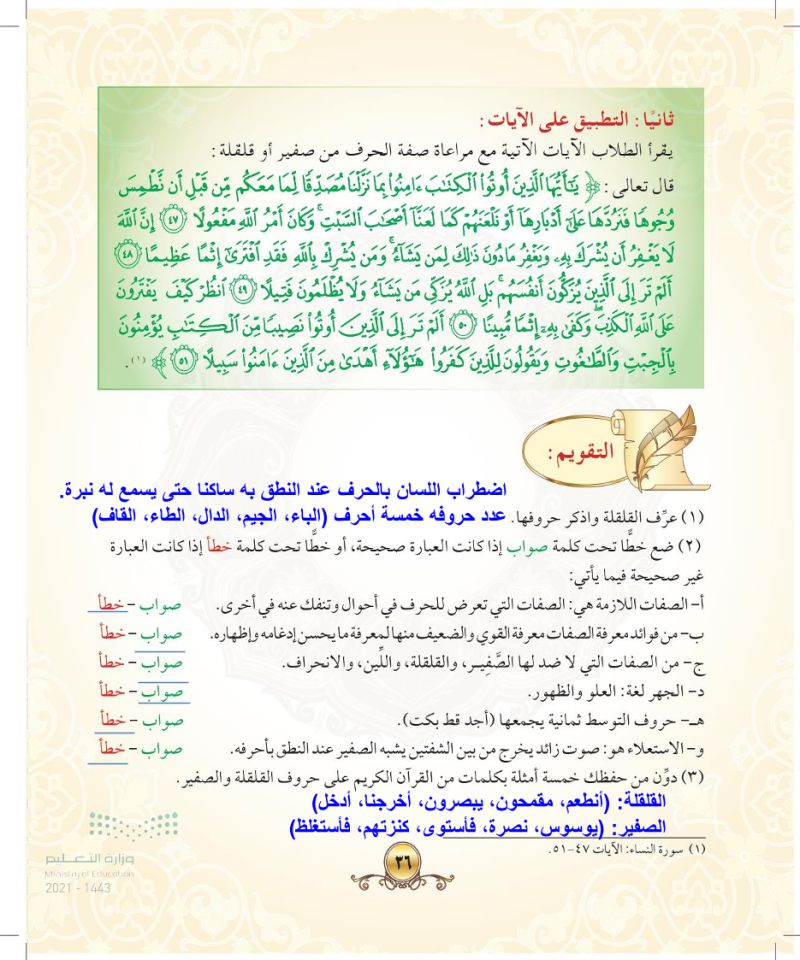 ثانيًا: التطبيق على الآيات:
يقرأ الطلاب الآيات الآتية مع مراعاة صفة الحرف من صفير أو قلقلة:
قال تعالى: ﴿ يَٰٓأَيُّهَا ٱلَّذِينَ أُوتُوا۟ ٱلْكِتَٰبَ ءَامِنُوا۟ بِمَا نَزَّلْنَا مُصَدِّقًا لِّمَا مَعَكُم مِّن قَبْلِ أَن نَّطْمِسَ
وُجُوهًا فَنَرُدَّهَا عَلَىٰٓ أَدْبَارِهَآ أَوْ نَلْعَنَهُمْ كَمَا لَعَنَّآ أَصْحَٰبَ ٱلسَّبْتِ ۚ وَكَانَ أَمْرُ ٱللَّهِ مَفْعُولًا ٤٧ إِنَّ ٱللَّهَ
لَا يَغْفِرُ أَن يُشْرَكَ بِهِۦ وَيَغْفِرُ مَا دُونَ ذَٰلِكَ لِمَن يَشَآءُ ۚ وَمَن يُشْرِكْ بِٱللَّهِ فَقَدِ ٱفْتَرَىٰٓ إِثْمًا عَظِيمًا ٤٨
أَلَمْ تَرَ إِلَى ٱلَّذِينَ يُزَكُّونَ أَنفُسَهُم ۚ بَلِ ٱللَّهُ يُزَكِّى مَن يَشَآءُ وَلَا يُظْلَمُونَ فَتِيلًا ٤٩ ٱنظُرْ كَيْفَ يَفْتَرُونَ
عَلَى ٱللَّهِ ٱلْكَذِبَ ۖ وَكَفَىٰ بِهِۦٓ إِثْمًا مُّبِينًا ٥٠ أَلَمْ تَرَ إِلَى ٱلَّذِينَ أُوتُوا۟ نَصِيبًا مِّنَ ٱلْكِتَٰبِ يُؤْمِنُونَ
بِٱلْجِبْتِ وَٱلطَّٰغُوتِ وَيَقُولُونَ لِلَّذِينَ كَفَرُوا۟ هَٰٓؤُلَآءِ أَهْدَىٰ مِنَ ٱلَّذِينَ ءَامَنُوا۟ سَبِيلًا ٥١ ﴾ (١).
التقويم:
اضطراب اللسان بالحرف عند النطق به ساكنا حتى يسمع له نبرة.
(١) عرِّف القلقلة واذكر حروفها. عدد حروفه خمسة أحرف (الباء، الجيم، الدال، الطاء، القاف)
(٢) ضع خطًّا تحت كلمة صواب إذا كانت العبارة صحيحة، أو خطًّا تحت كلمة خطأ إذا كانت العبارة
غير صحيحة فيما يأتي:
أ- الصفات اللازمة هي: الصفات التي تعرض للحرف في أحوال وتنفك عنه في أخرى. صواب - خطأ
ب- من فوائد معرفة الصفات معرفة القوي والضعيف منها لمعرفة ما يحسن إدغامه وإظهاره. صواب - خطأ
ج- من الصفات التي لا ضد لها الصَّفِير، والقلقلة، واللِّين، والانحراف. صواب - خطأ
د- الجهر لغة: العلو والظهور. صواب - خطأ
هـ- حروف التوسط ثمانية يجمعها (أجد قط بكت). صواب - خطأ
و- الاستعلاء هو: صوت زائد يخرج من بين الشفتين يشبه الصفير عند النطق بأحرفه. صواب - خطأ
(٣) دوِّن من حفظك خمسة أمثلة بكلمات من القرآن الكريم على حروف القلقلة والصفير.
القلقلة: (أنطعم، مقمحون، يبصرون، أخرجنا، أدخل)
الصفير: (يوسوس، نصرة، فأستوى، كنزتهم، فأستغلظ)
(١) سورة النساء: الآيات ٤٧-٥١.
٣٦
وزارة التعليم
Ministry of Education
2021 - 1443